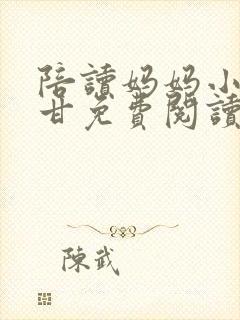 陪讀妈妈小
甘免費閱讀
陳武